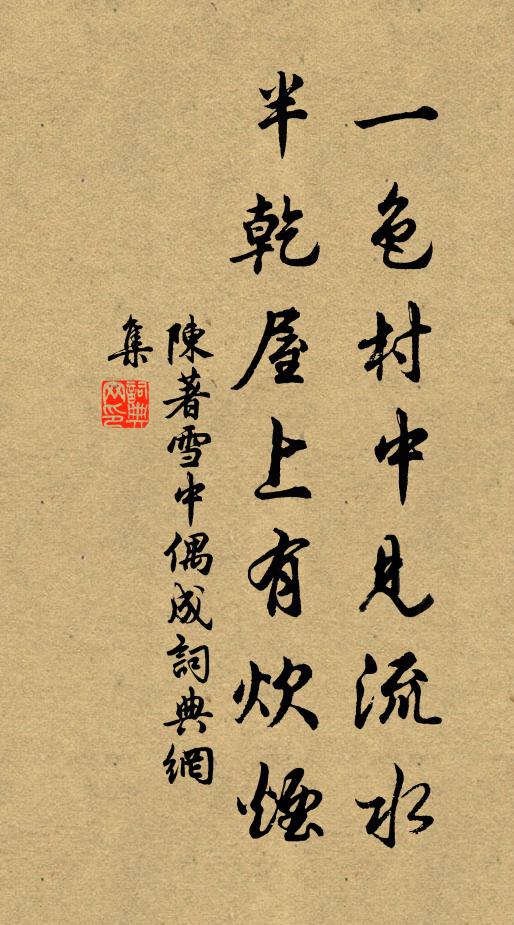 一色村中見流水
半乾屋上有炊煙
陳著雪中偶成詞典網
集
詞典
网印